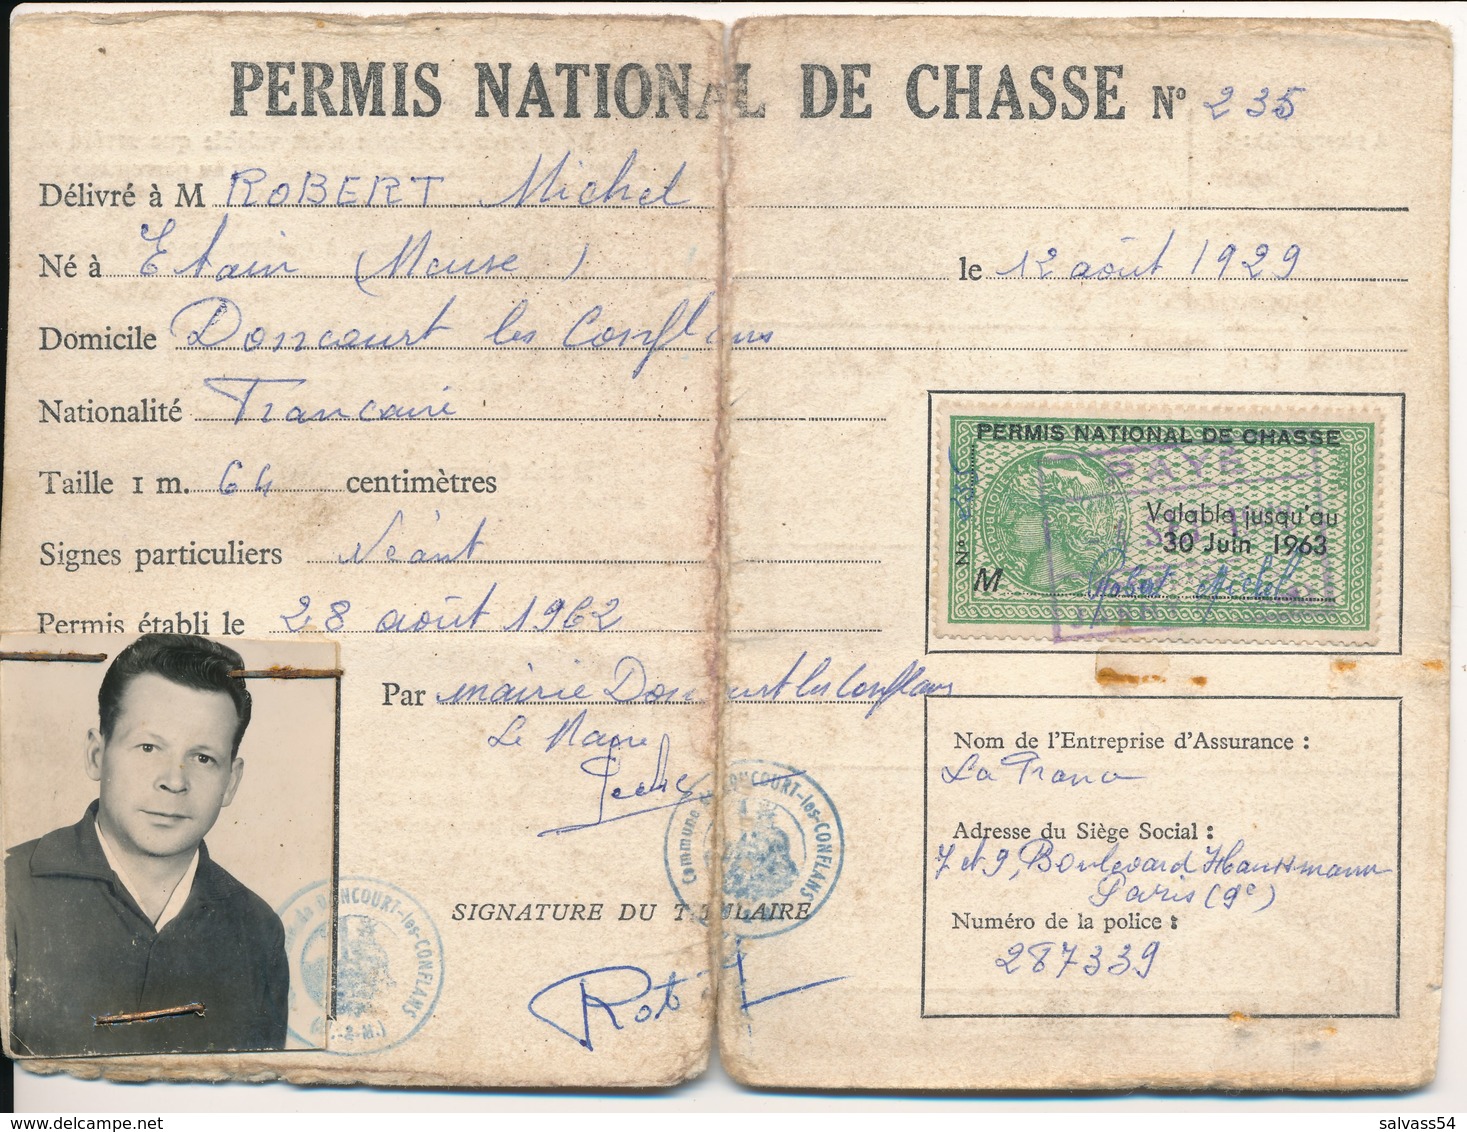 PERMIS NATIONAL DE CHASSE Nº 235
Délivré à M ROBERT Michel
Né à Etain (Meuse) le 12 août 1929
Domicile Doncourt les Conflans
Nationalité Francaise
Taille 1 m. 64 centimètres
Signes particuliers Néant
Permis établi le 28 août 1962
Par mairie Doncourt les Conflans
Le Maire
Commune de DONCOURT-les-CONFLANS
SIGNATURE DU TITULAIRE
Robert
de DONCOURT-les-CONFLANS
(M.-&-M.)
PERMIS NATIONAL DE CHASSE
RÉPUBLIQUE
PAYÉ
Valable jusqu'au
30 Juin 1963
Nº
M Robert Michel
Nom de l'Entreprise d'Assurance :
La France
Adresse du Siège Social :
7 et 9, Boulevard Haussmann
Paris (9e)
Numéro de la police :
287339
salvass54